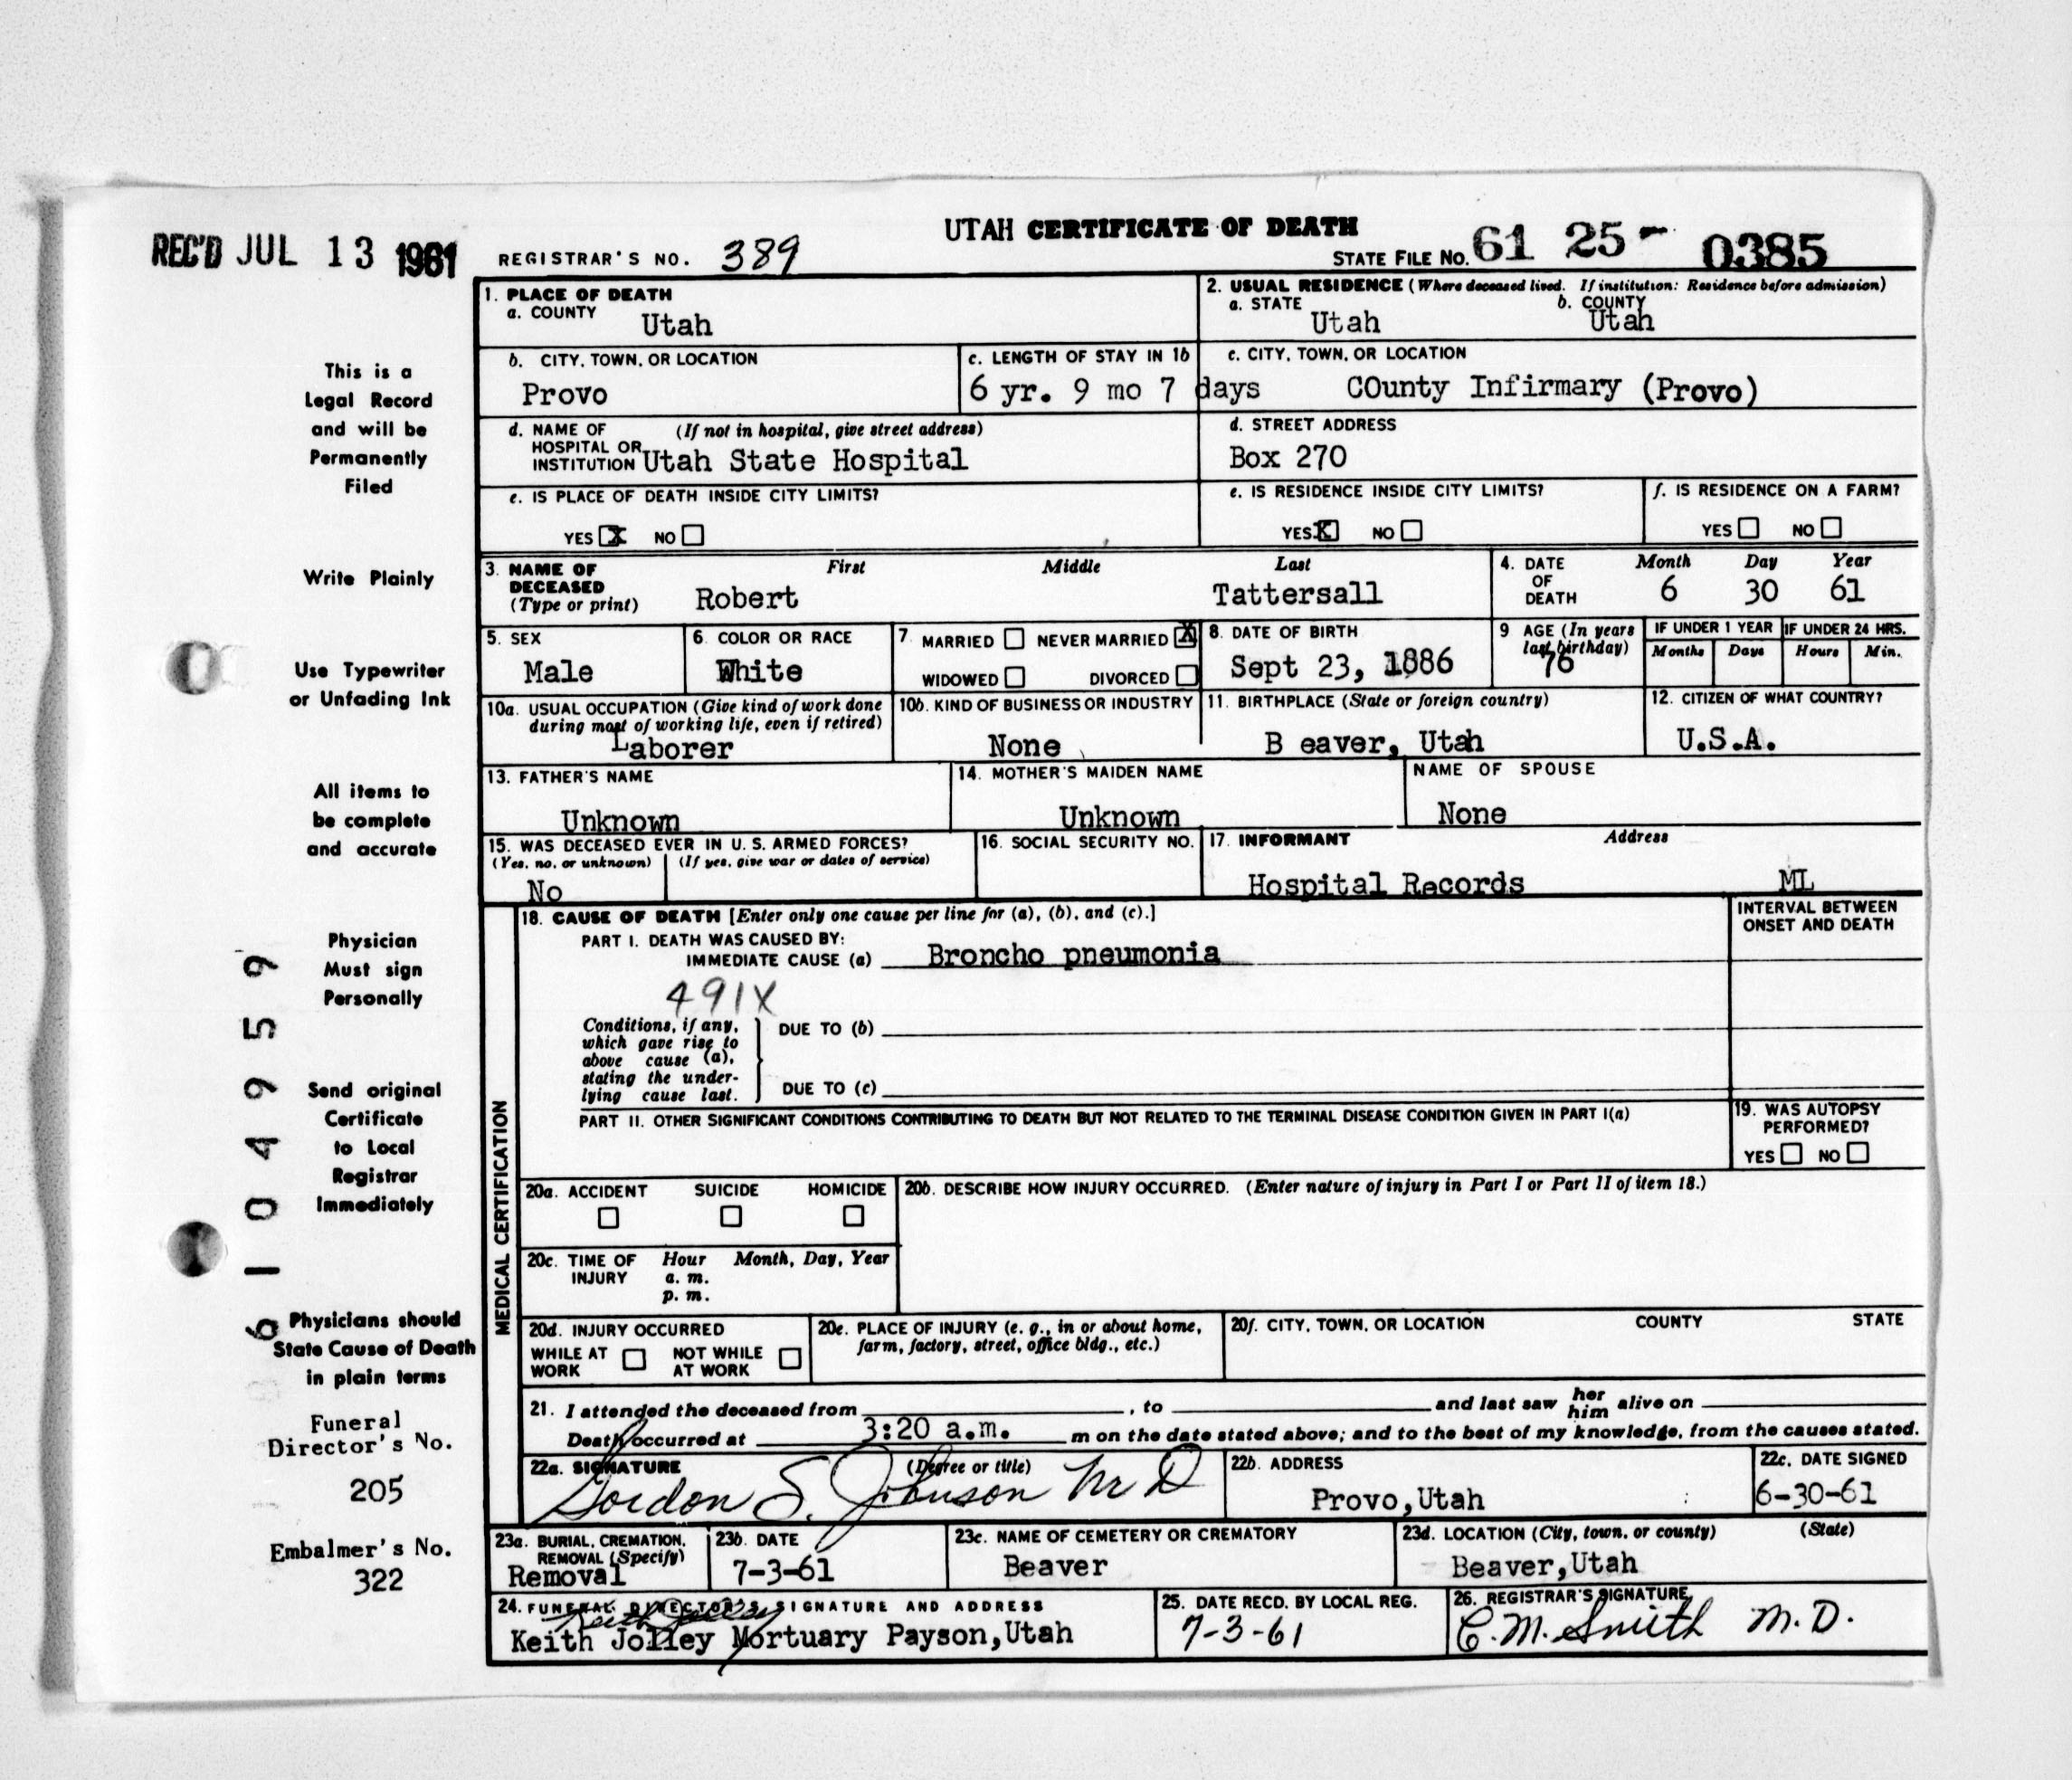 REC'D JUL 13 1961
UTAH CERTIFICATE OF DEATH
REGISTRAR'S NO. 389
STATE FILE No. 61 25- 0385
This is a
Legal Record
and will be
Permanently
Filed
Write Plainly
Use Typewriter
or Unfading Ink
All items to
be complete
and accurate
Physician
Must sign
Personally
Send original
Certificate
to Local
Registrar
Immediately
Physicians should
State Cause of Death
in plain terms
Funeral
Director's No.
205
Embalmer's No.
322
6 1 0 4 9 5 9
1. PLACE OF DEATH
a. COUNTY Utah
2. USUAL RESIDENCE (Where deceased lived. If institution: Residence before admission)
a. STATE Utah b. COUNTY Utah
b. CITY, TOWN, OR LOCATION
Provo
c. LENGTH OF STAY IN 1b
6 yr. 9 mo 7 days
c. CITY, TOWN, OR LOCATION
COunty Infirmary (Provo)
d. NAME OF (If not in hospital, give street address)
HOSPITAL OR
INSTITUTION Utah State Hospital
d. STREET ADDRESS
Box 270
e. IS PLACE OF DEATH INSIDE CITY LIMITS?
YES X NO
e. IS RESIDENCE INSIDE CITY LIMITS?
YES X NO
f. IS RESIDENCE ON A FARM?
YES NO
3. NAME OF
DECEASED
(Type or print)
First Middle Last
Robert Tattersall
4. DATE
OF
DEATH
Month Day Year
6 30 61
5. SEX
Male
6. COLOR OR RACE
White
7. MARRIED NEVER MARRIED X
WIDOWED DIVORCED
8. DATE OF BIRTH
Sept 23, 1886
9 AGE (In years
last birthday)
76
IF UNDER 1 YEAR
Months Days
IF UNDER 24 HRS.
Hours Min.
10a. USUAL OCCUPATION (Give kind of work done
during most of working life, even if retired)
Laborer
10b. KIND OF BUSINESS OR INDUSTRY
None
11. BIRTHPLACE (State or foreign country)
B eaver, Utah
12. CITIZEN OF WHAT COUNTRY?
U.S.A.
13. FATHER'S NAME
Unknown
14. MOTHER'S MAIDEN NAME
Unknown
NAME OF SPOUSE
None
15. WAS DECEASED EVER IN U. S. ARMED FORCES?
(Yes, no, or unknown) (If yes, give war or dates of service)
No
16. SOCIAL SECURITY NO.
17. INFORMANT Address
Hospital Records ML
MEDICAL CERTIFICATION
18. CAUSE OF DEATH [Enter only one cause per line for (a), (b), and (c).]
PART I. DEATH WAS CAUSED BY:
IMMEDIATE CAUSE (a) Broncho pneumonia
INTERVAL BETWEEN
ONSET AND DEATH
491X
Conditions, if any,
which gave rise to
above cause (a),
stating the under-
lying cause last.
DUE TO (b)
DUE TO (c)
PART II. OTHER SIGNIFICANT CONDITIONS CONTRIBUTING TO DEATH BUT NOT RELATED TO THE TERMINAL DISEASE CONDITION GIVEN IN PART I(a)
19. WAS AUTOPSY
PERFORMED?
YES NO
20a. ACCIDENT SUICIDE HOMICIDE
20b. DESCRIBE HOW INJURY OCCURRED. (Enter nature of injury in Part I or Part II of item 18.)
20c. TIME OF Hour Month, Day, Year
INJURY a. m.
p. m.
20d. INJURY OCCURRED
WHILE AT NOT WHILE
WORK AT WORK
20e. PLACE OF INJURY (e. g., in or about home,
farm, factory, street, office bldg., etc.)
20f. CITY, TOWN, OR LOCATION COUNTY STATE
21. I attended the deceased from , to and last saw her him alive on
Death occurred at 3:20 a.m. m on the date stated above; and to the best of my knowledge, from the causes stated.
22a. SIGNATURE (Degree or title)
Gordon S. Johnson M D
22b. ADDRESS
Provo,Utah
22c. DATE SIGNED
6-30-61
23a. BURIAL, CREMATION,
REMOVAL (Specify)
Removal
23b. DATE
7-3-61
23c. NAME OF CEMETERY OR CREMATORY
Beaver
23d. LOCATION (City, town, or county) (State)
Beaver,Utah
24. FUNERAL DIRECTOR'S SIGNATURE AND ADDRESS
Keith Jolley
Keith Jolley Mortuary Payson,Utah
25. DATE RECD. BY LOCAL REG.
7-3-61
26. REGISTRAR'S SIGNATURE
C. M. Smith M. D.